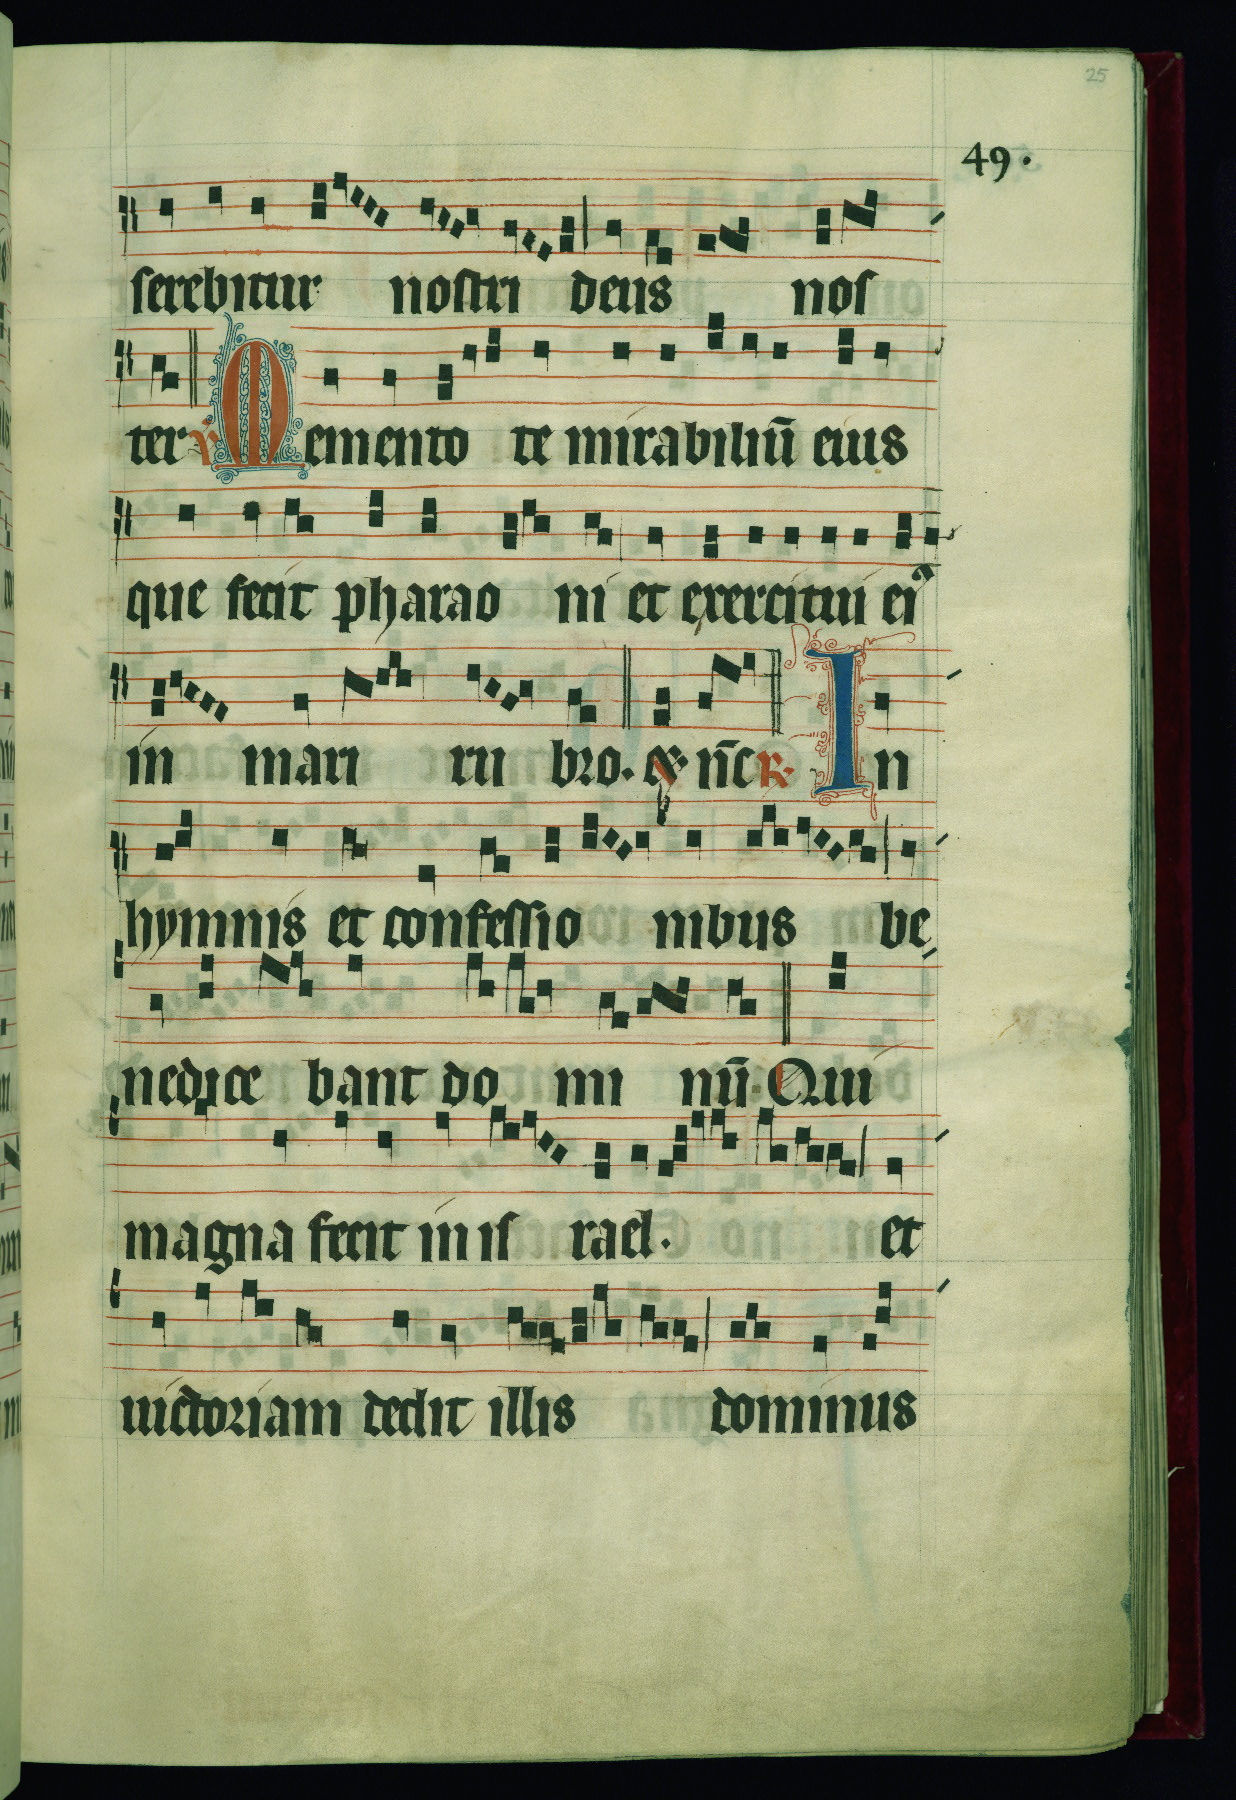 25
49.
serebitur nostri deus nos
ter ℣ Memento te mirabiliū eius
que fecit pharao ni et exercitui eiꝰ
in mari ru bro. et nc̄ ℟. In
hymnis et confessio nibus be
nedice bant do mi nū. Qui
magna fecit in is rael. et
uictoriam dedit illis dominus